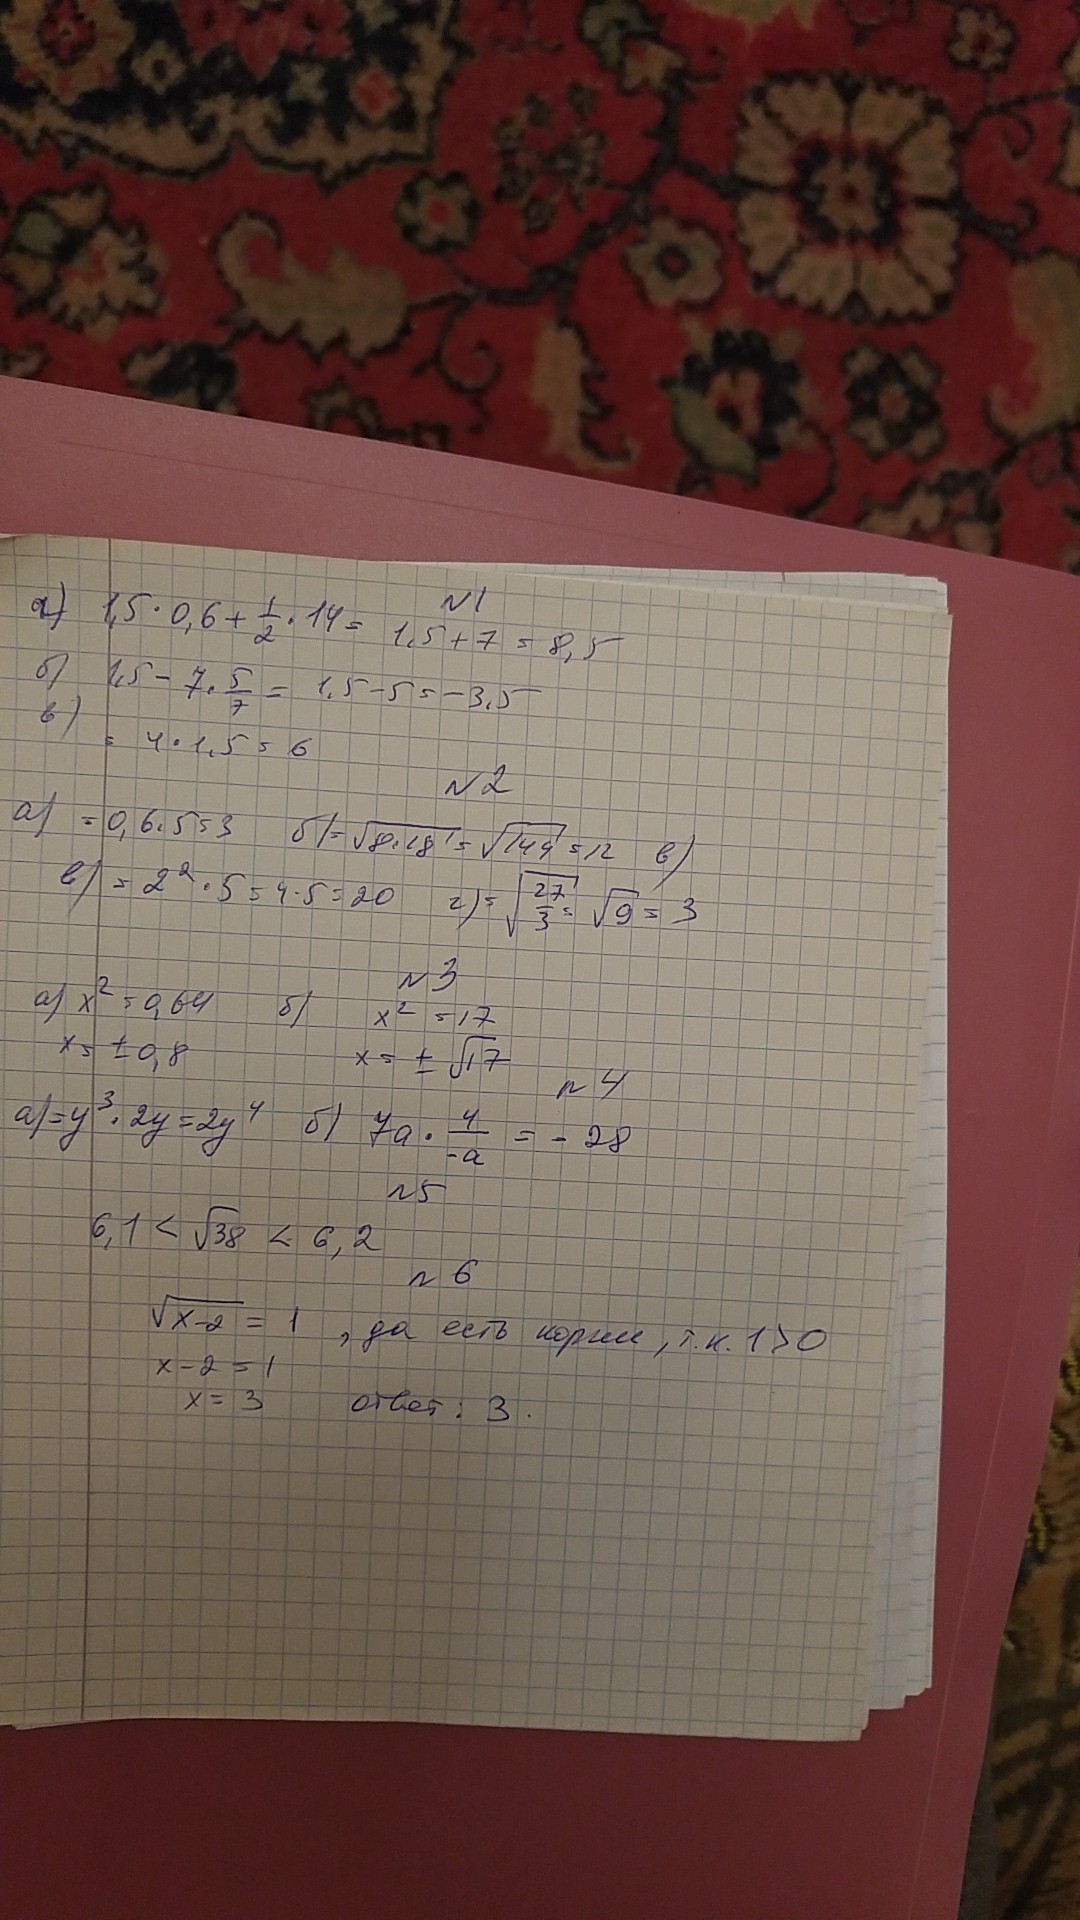 №1
а) 1,5·0,6+1/2·14= 1,5+7=8,5
б) 1,5-7·5/7= 1,5-5=-3,5
в)
= 4·1,5=6
№2
а) =0,6·5=3 б)=√8·18=√144=12 в)
в)=2²·5=4·5=20 г)=√27/3=√9=3
№3
а) x²=0,64 б) x²=17
x=±0,8 x=±√17
№4
а)=y³·2y=2y⁴ б) 7a·4/-a=-28
№5
6,1<√38<6,2
№6
√x-2=1, да есть корни, т.к. 1>0
x-2=1
x=3 ответ: 3.